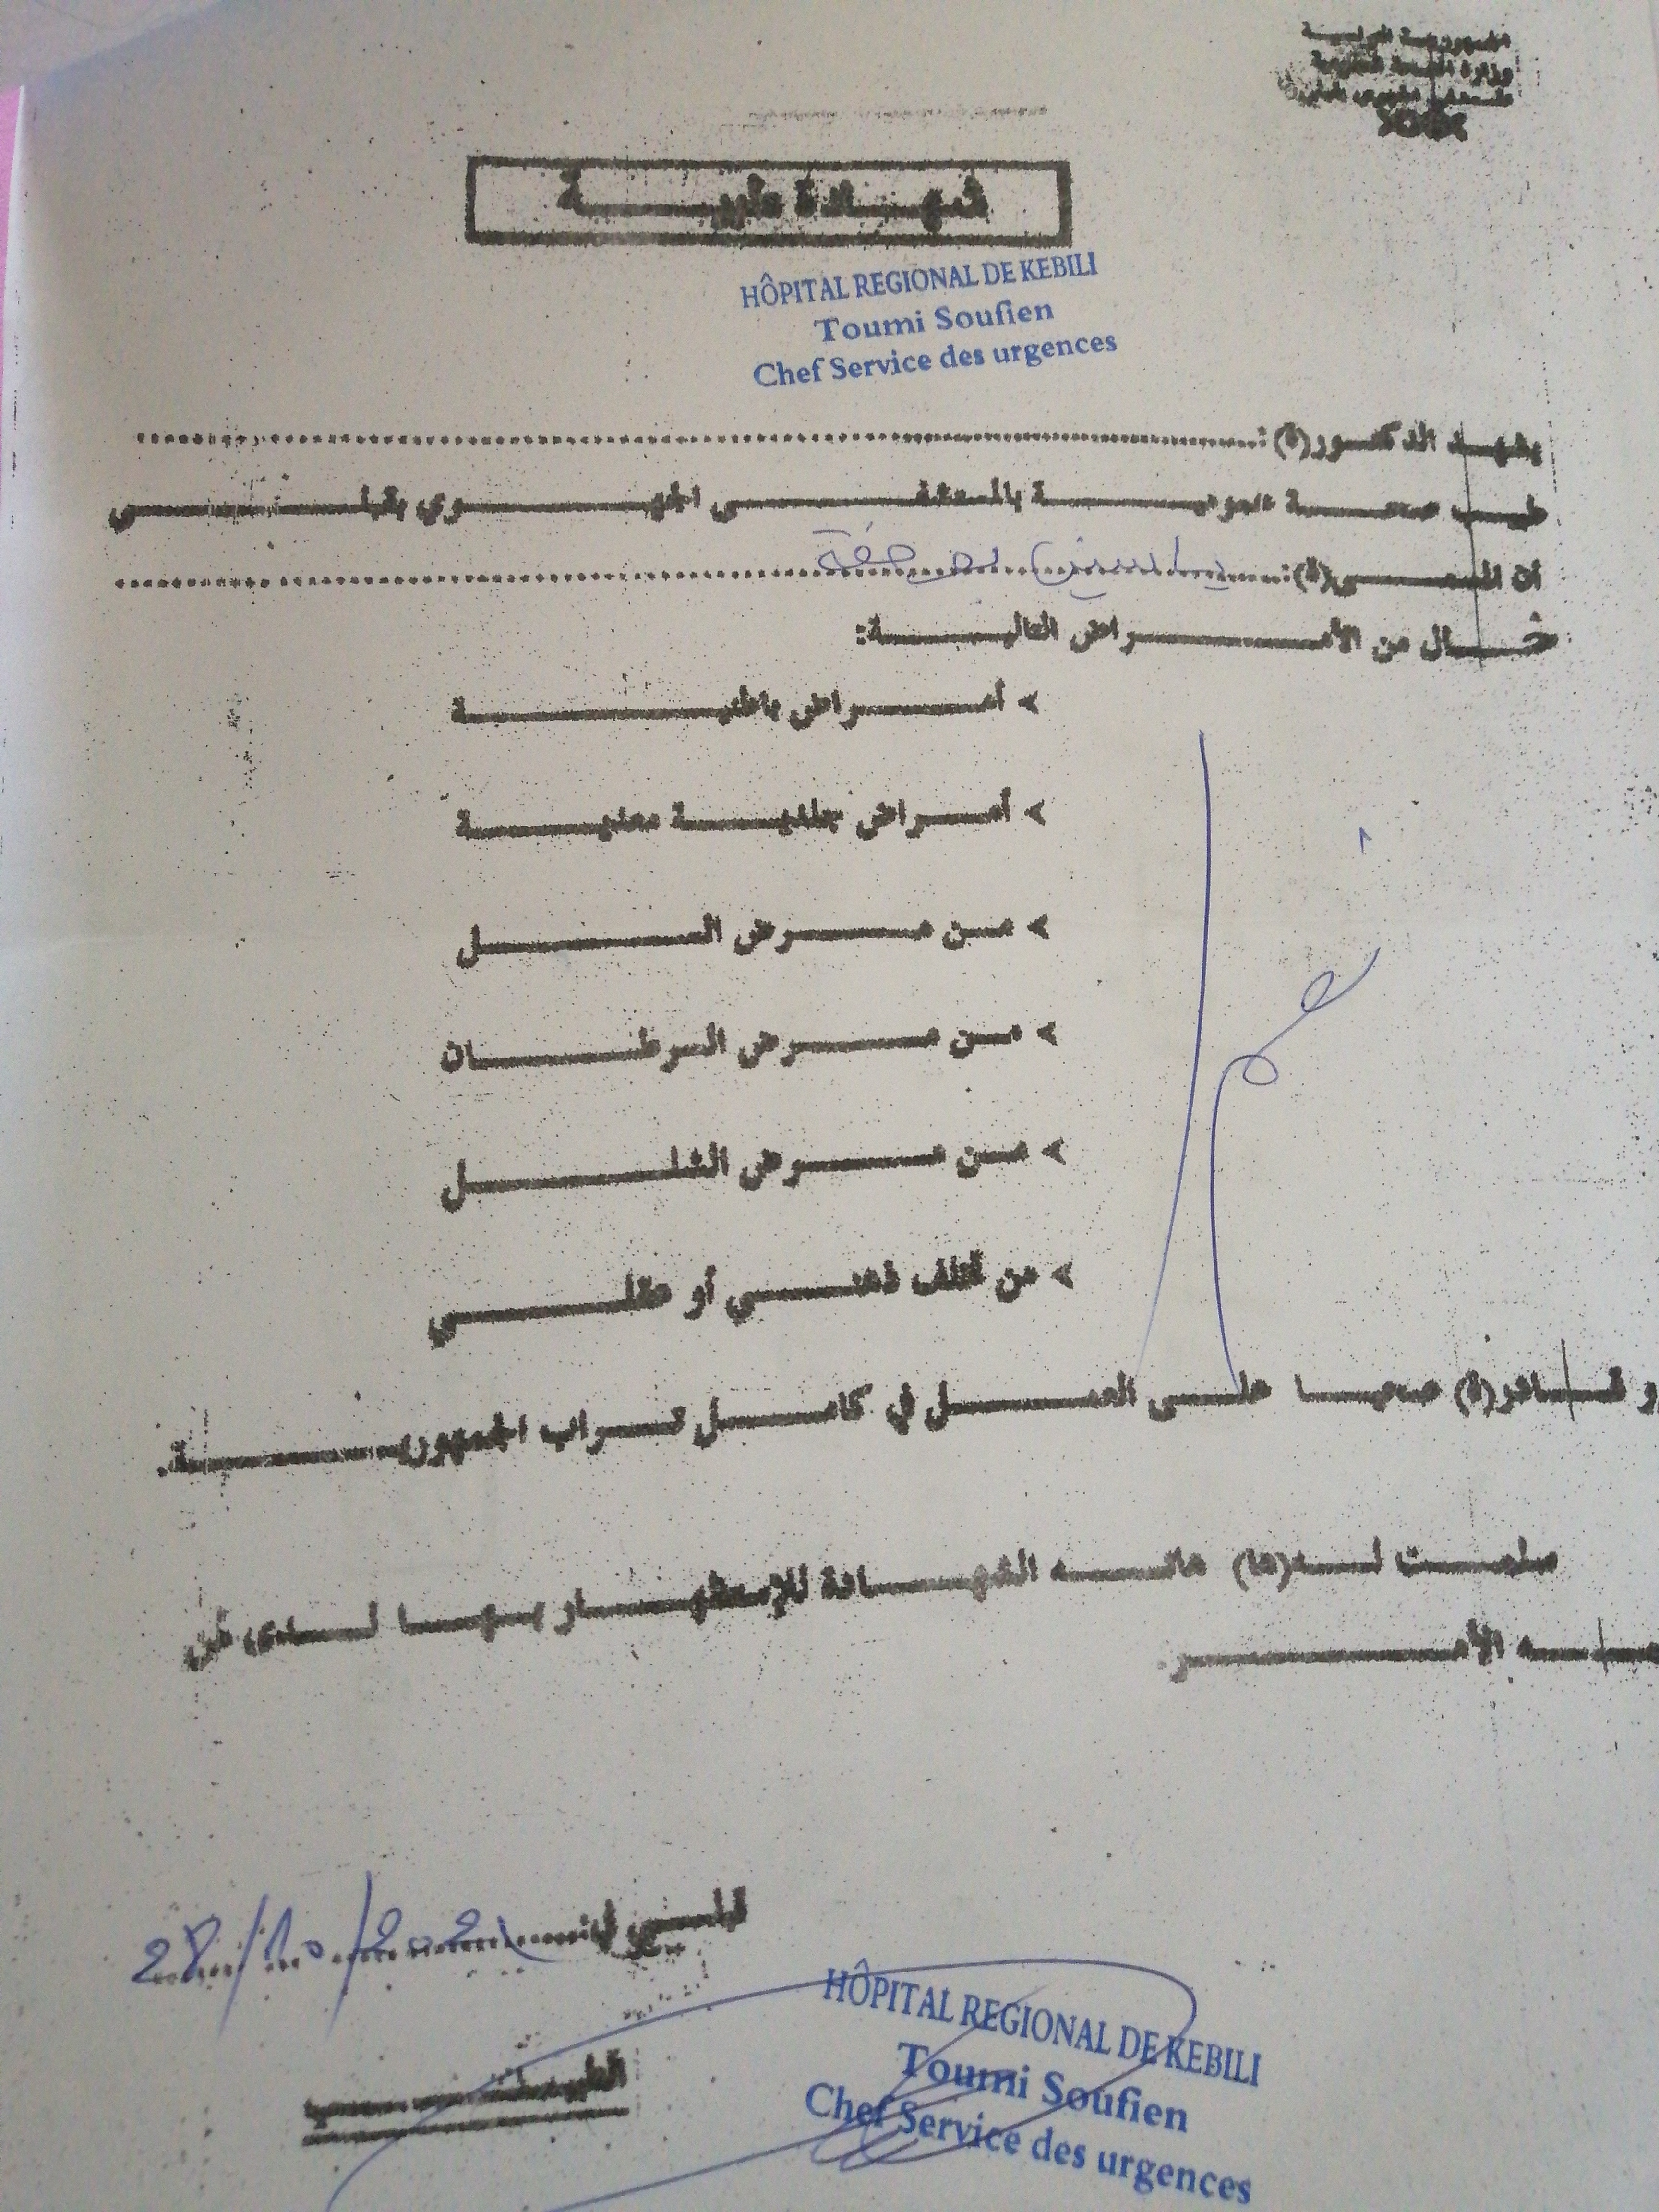 الجمهورية التونسية
وزارة الصحة العمومية
المستشفى الجهوي بقبلي
شهادة طبية
HÔPITAL REGIONAL DE KEBILI
Toumi Soufien
Chef Service des urgences
يشهد الدكتور(ة):
طبيب صحة عمومية بالمستشفى الجهوي بقبلي
أن المسمى(ة): ياسين
خال من الأمراض التالية:
> أمراض باطنية
> أمراض جلدية معدية
> من مرض السل
> من مرض السرطان
> من مرض الشلل
> من تخلف ذهني أو عقلي
و قادر(ة) صحيا على العمل في كامل تراب الجمهورية.
سلمت له(ها) هاته الشهادة للإستظهار بها لدى من
يهمه الأمر.
قبلي في: 28/10/2021
الطبيب
HÔPITAL REGIONAL DE KEBILI
Toumi Soufien
Chef Service des urgences